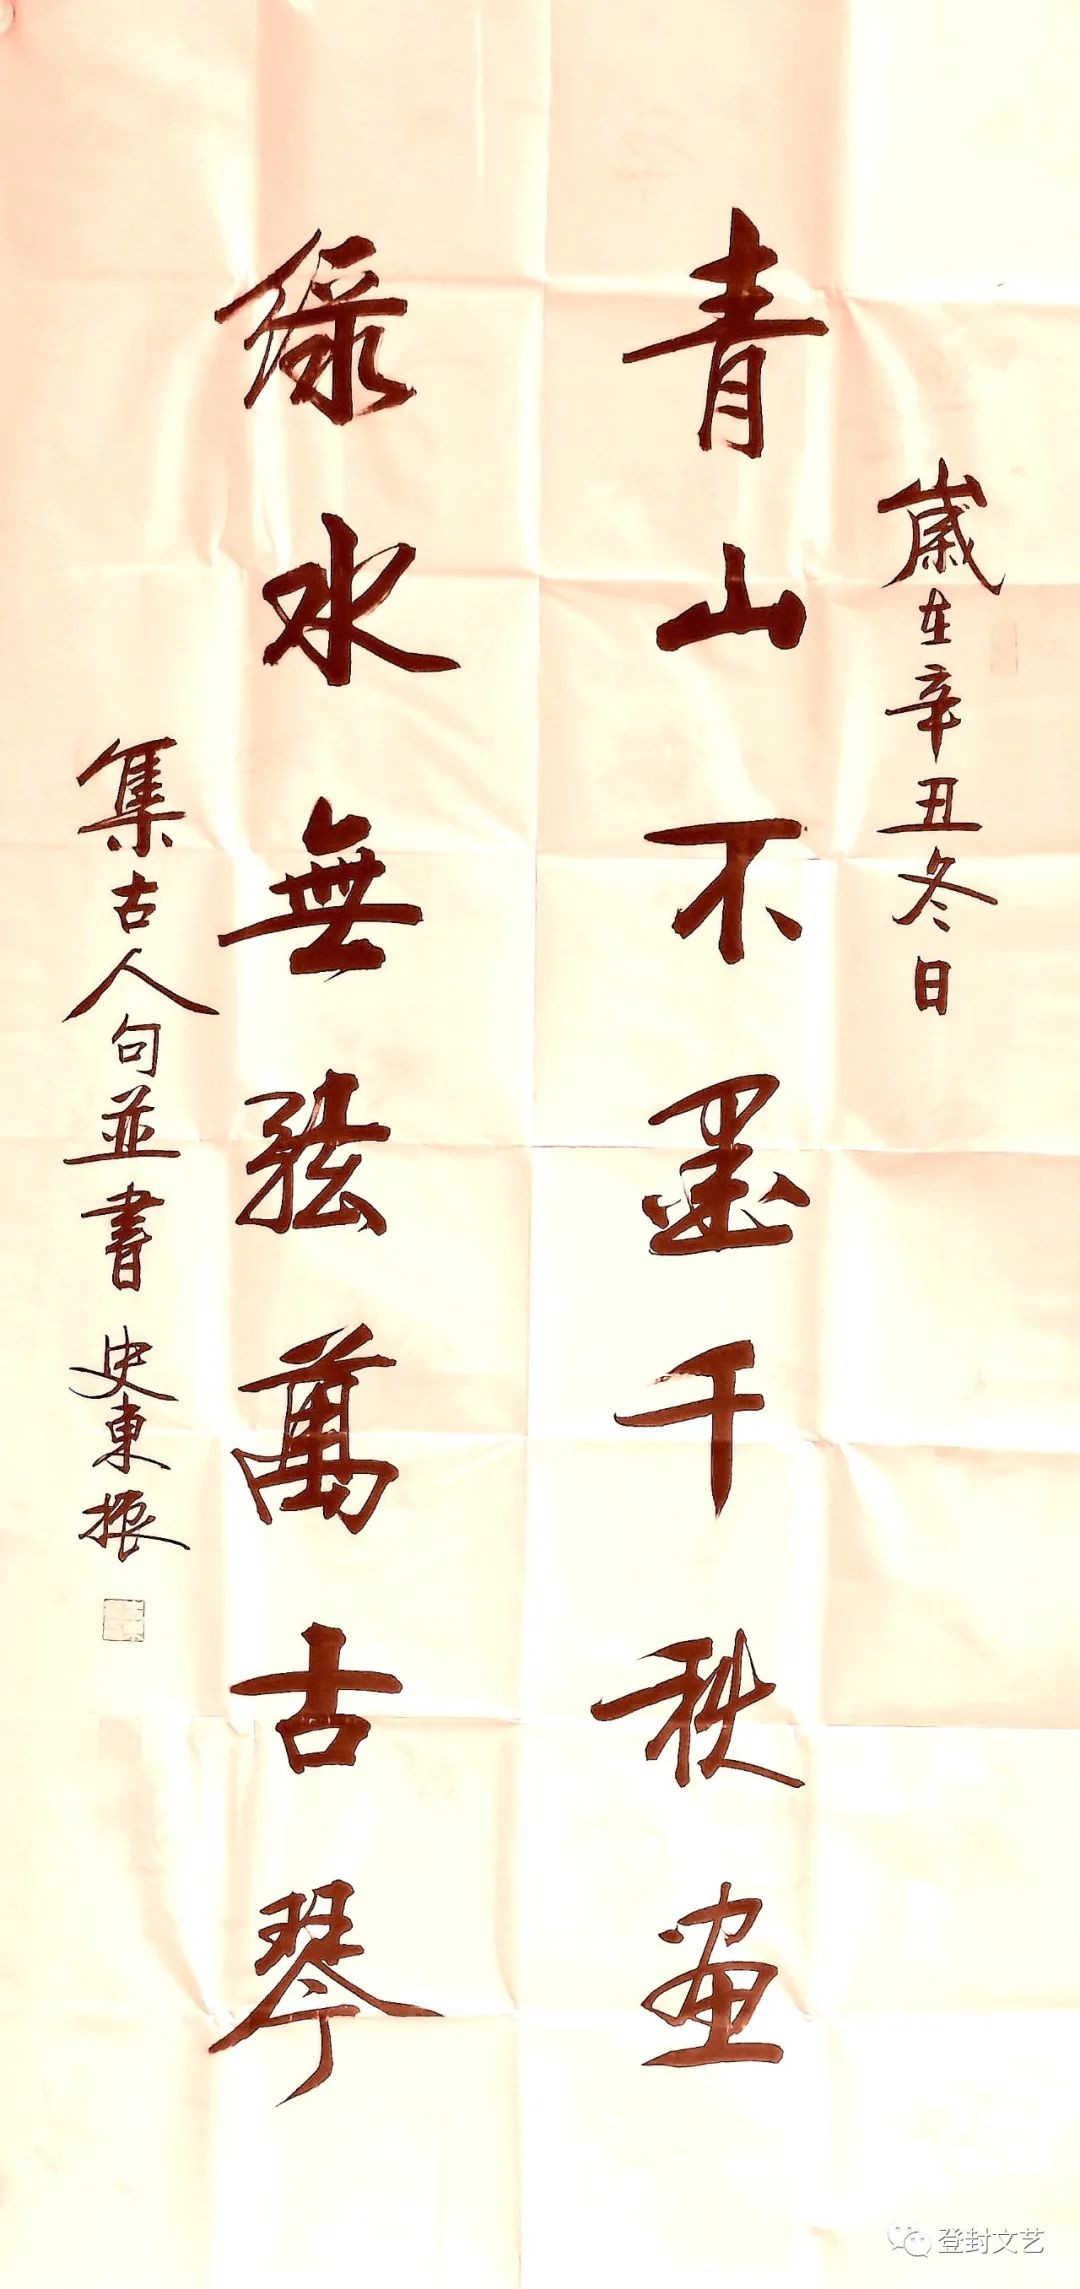 歲在辛丑冬日
青山不墨千秩画
绿水無弦萬古琴
集古人句並書 史東振
登封文艺